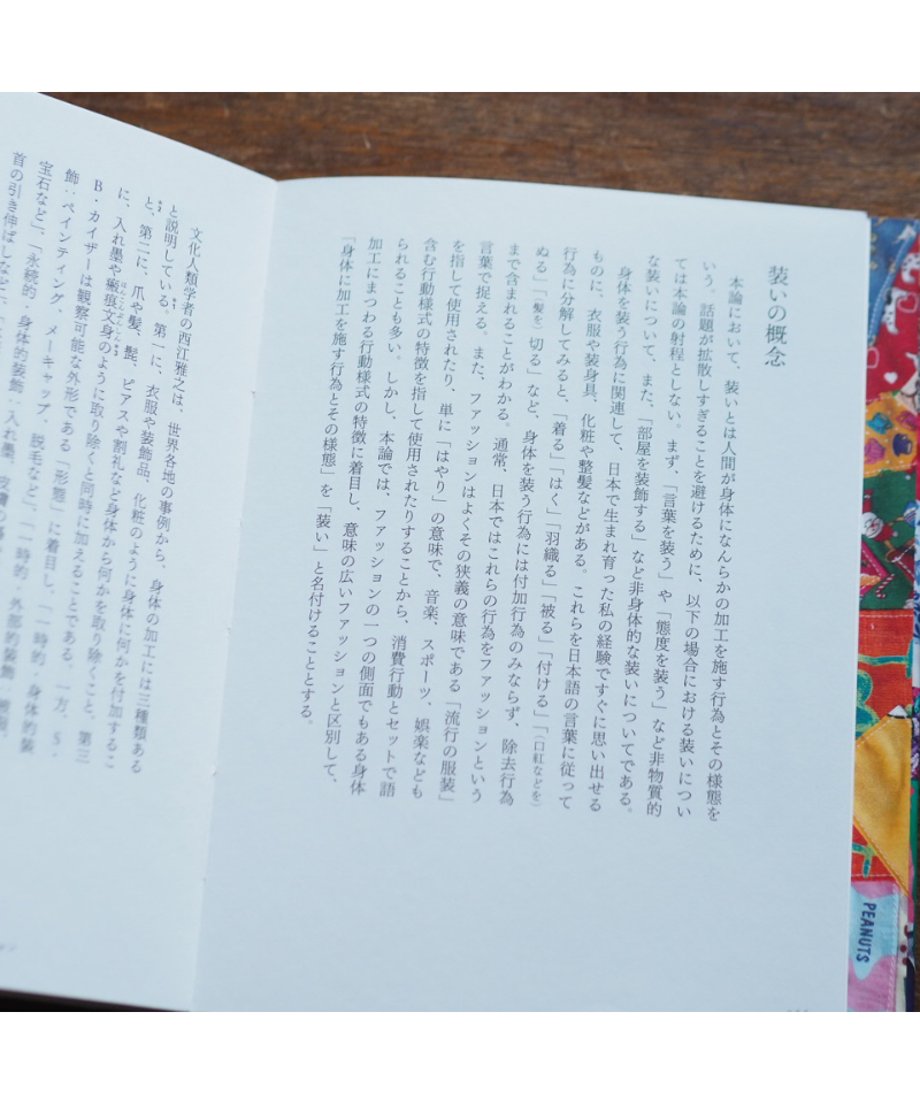 装いの概念
本論において、装いとは人間が身体になんらかの加工を施す行為とその様態を
いう。話題が拡散しすぎることを避けるために、以下の場合における装いについ
ては本論の射程としない。まず、「言葉を装う」や「態度を装う」など非物質的
な装いについて、また、「部屋を装飾する」など非身体的な装いについてである。
身体を装う行為に関連して、日本で生まれ育った私の経験ですぐに思い出せる
ものに、衣服や装身具、化粧や整髪などがある。これらを日本語の言葉に従って
行為に分解してみると、「着る」「はく」「羽織る」「被る」「付ける」「（口紅などを）
ぬる」「（髪を）切る」など、身体を装う行為には付加行為のみならず、除去行為
まで含まれることがわかる。通常、日本ではこれらの行為をファッションという
言葉で捉える。また、ファッションはよくその狭義の意味である「流行の服装」
を指して使用されたり、単に「はやり」の意味で、音楽、スポーツ、娯楽なども
含む行動様式の特徴を指して使用されたりすることから、消費行動とセットで語
られることも多い。しかし、本論では、ファッションの一つの側面でもある身体
加工にまつわる行動様式の特徴に着目し、意味の広いファッションと区別して、
「身体に加工を施す行為とその様態」を「装い」と名付けることとする。
文化人類学者の西江雅之は、世界各地の事例から、身体の加工には三種類ある
と説明している。第一に、衣服や装飾品、化粧のように身体に何かを付加するこ
と、第二に、爪や髪、髭、ピアスや割礼など身体から何かを取り除くこと、第三
に、入れ墨や瘢痕文身のように取り除くと同時に加えることである。一方、S・
B・カイザーは観察可能な外形である「形態」に着目し、「一時的・身体的装
飾：ペインティング、メーキャップ、脱毛など」、「一時的・外部的装飾：被服、
宝石など」、「永続的・身体的装飾：入れ墨、皮膚の
首の引き伸ばしなど」、
PEANUTS